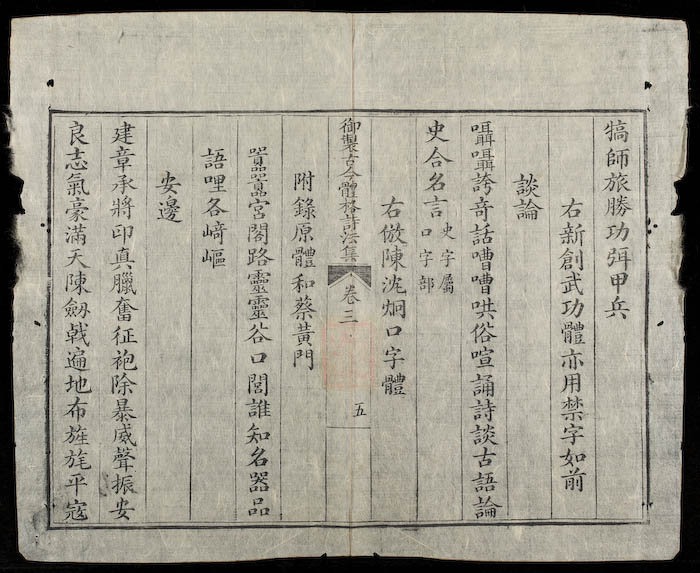 犒師旅勝功弭甲兵
右新創武功體亦用禁字如前
談論
囁囁誇奇話嘈嘈哄俗喧誦詩談古語論
史合名言史字屬口字部
右倣陳沈烱口字體
御製古今體格詩法集 卷三 五
附錄原體和蔡黃門
嚣嚣宮閣路靈靈谷口閭誰知名器品
語哩各崎嶇
安邊
建章承將印真臘奮征袍除暴威聲振安
良志氣豪滿天陳劔戟遍地布旌旄平寇